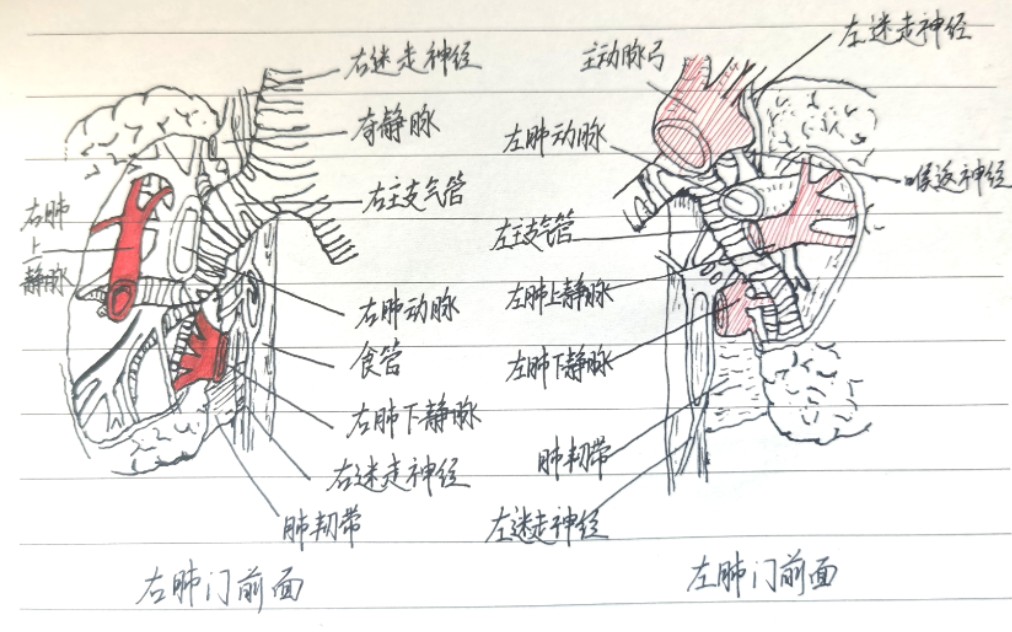 右迷走神经
奇静脉
右主支气管
右肺
上
静脉
右肺动脉
食管
右肺下静脉
右迷走神经
肺韧带
右肺门前面
左迷走神经
主动脉弓
左肺动脉
喉返神经
左主支气管
左肺上静脉
左肺下静脉
肺韧带
左迷走神经
左肺门前面